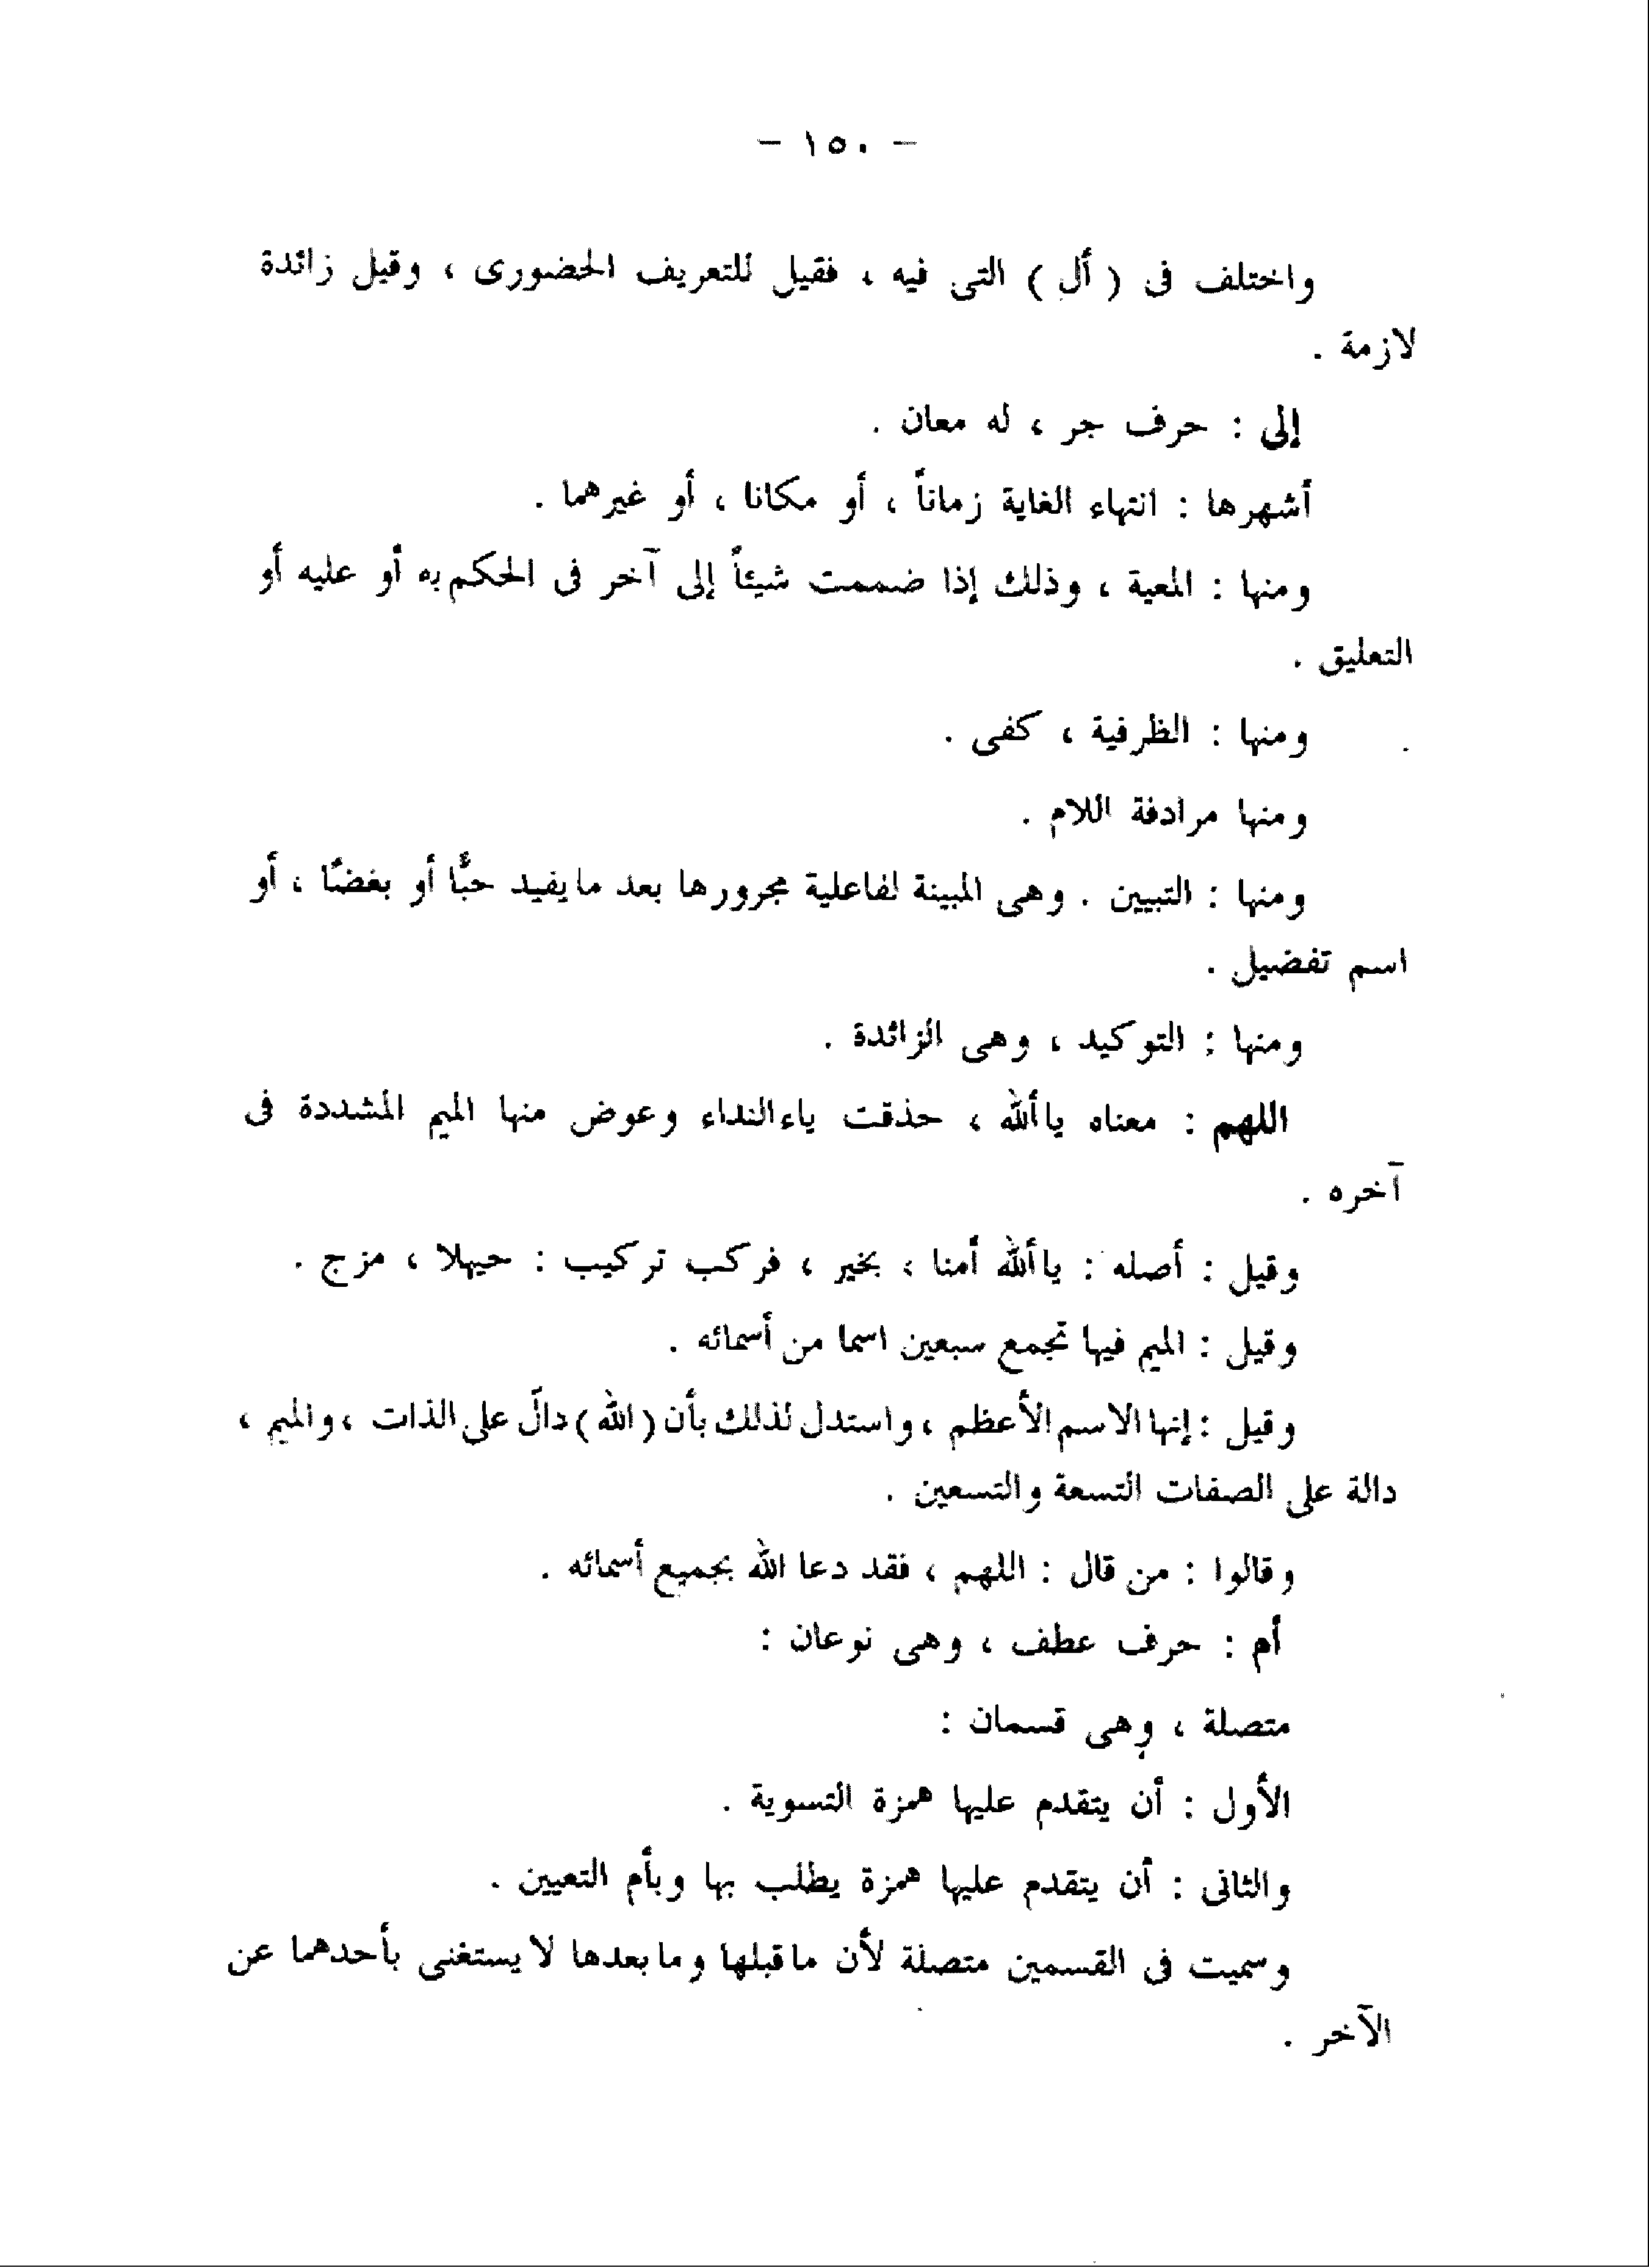 - ١٥٠ -
واختلف فى ( أل ) التى فيه ، فقيل للتعريف الحضورى ، وقيل زائدة
لازمة .
إلى : حرف جر ، له معان .
أشهرها : انتهاء الغاية زماناً ، أو مكانا ، أو غيرهما .
ومنها : المعية ، وذلك إذا ضممت شيئاً إلى آخر فى الحكم به أو عليه أو
التعليق .
ومنها : الظرفية ، كفى .
ومنها مرادفة اللام .
ومنها : التبيين . وهى المبينة لفاعلية مجرورها بعد ما يفيد حبًّا أو بغضًا ، أو
اسم تفضيل .
ومنها : التوكيد ، وهى الزائدة .
اللهم : معناه يا ألله ، حذقت ياء النداء وعوض منها الميم المشددة فى
آخره .
وقيل : أصله : يا ألله أمنا ، بخير ، فركب تركيب : حيهلا ، مزج .
وقيل : الميم فيها تجمع سبعين اسما من أسمائه .
وقيل : إنها الاسم الأعظم ، واستدل لذلك بأن ( الله ) دالّ على الذات ، والميم ،
دالة على الصفات التسعة والتسعين .
وقالوا : من قال : اللهم ، فقد دعا الله بجميع أسمائه .
أم : حرف عطف ، وهى نوعان :
متصلة ، وهى قسمان :
الأول : أن يتقدم عليها همزة التسوية .
والثانى : أن يتقدم عليها همزة يطلب بها وبأم التعيين .
وسميت فى القسمين متصلة لأن ما قبلها وما بعدها لا يستغنى بأحدهما عن
الآخر .